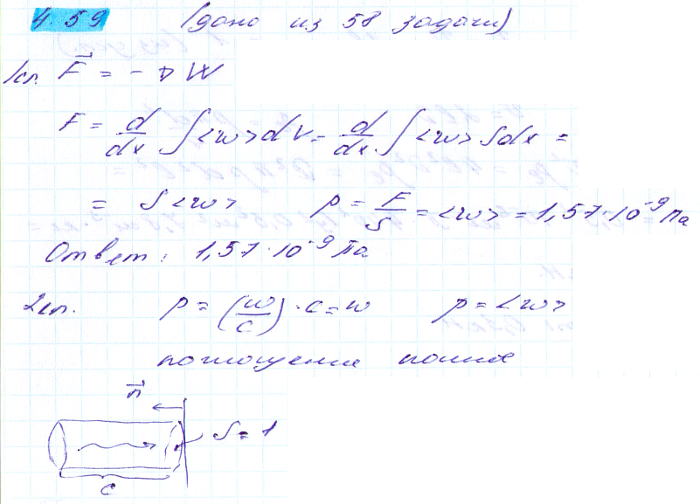 4.59 (дано из 58 задачи)
1сп. F⃗ = - ∇ W
F = d/dx ∫ <w> dV = d/dx ∫ <w> S dx =
= S <w> p = F/S = <w> = 1,57·10⁻⁹ Па
Ответ: 1,57·10⁻⁹ Па
2сп. p = (w/c)·c = w p = <w>
поглощение полное
n⃗
S = 1
c